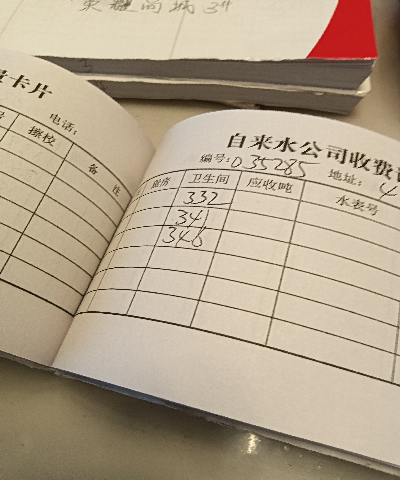 卡片
电话:
擦校
备注
自来水公司收费
编号:035285 地址: 4
厨房 卫生间 应收吨 水表号
332
341
346